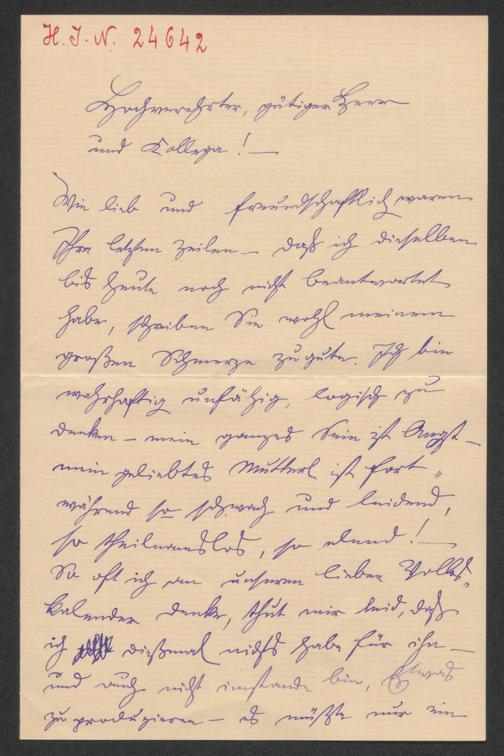 H. I. N. 24642
Hochverehrter, gütiger Herr
und Kollega! —
Wie lieb und freundschaftlich waren
Ihre letzten Zeilen — daß ich dieselben
bis heute noch nicht beantwortet
habe, schreiben Sie wohl meinem
großen Schmerze zu gute. Ich bin
wahrhaftig unfähig, logisch zu
denken — mein ganzes Sein ist Angst —
mein geliebtes Mutterl ist fort„
während so schwach und leidend,
so theilnamslos, so elend! —
So oft ich an unseren lieben Volks„
kalender denke, thut mir leid, daß
ich dießmal nichts habe für ihn —
und auch nicht imstande bin, Etwas
zu produzieren — es müßte nur ein